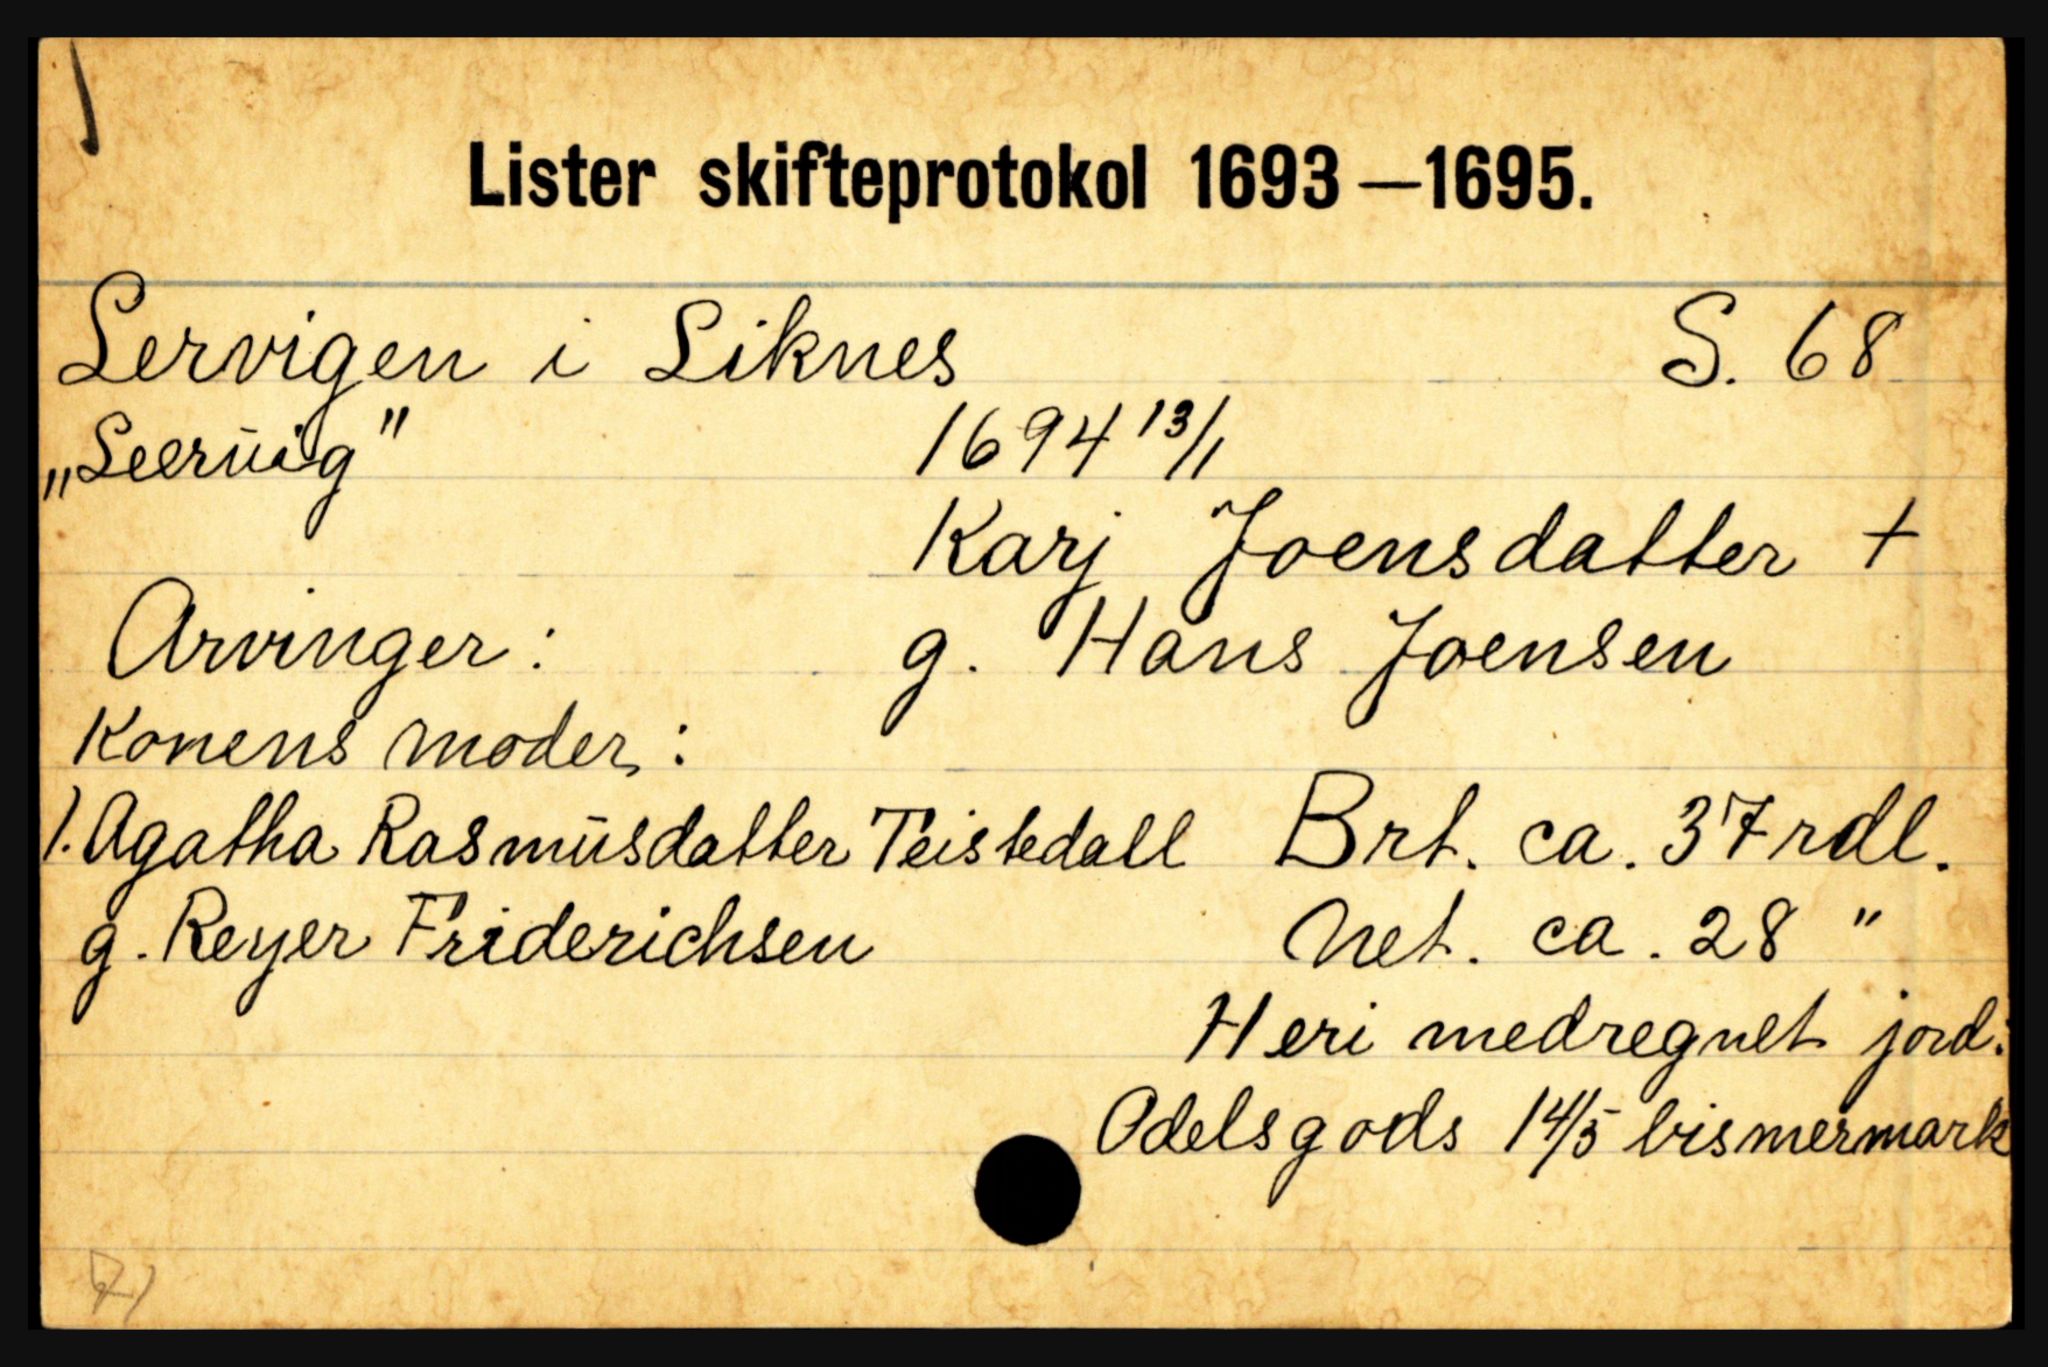 Lister skifteprotokol 1693—1695.
Lervigen i Liknes S. 68
„Leerŭig" 1694 13/1
Karj Joensdatter +
Arvinger: g. Hans Joensen
Konens moder:
1. Agatha Rasmŭsdatter Teistedall Brt. ca. 37 rdl.
g. Reyer Friderichsen Net. ca. 28 "
Heri medregnet jord:
Odelsgods 14/5 bismermark